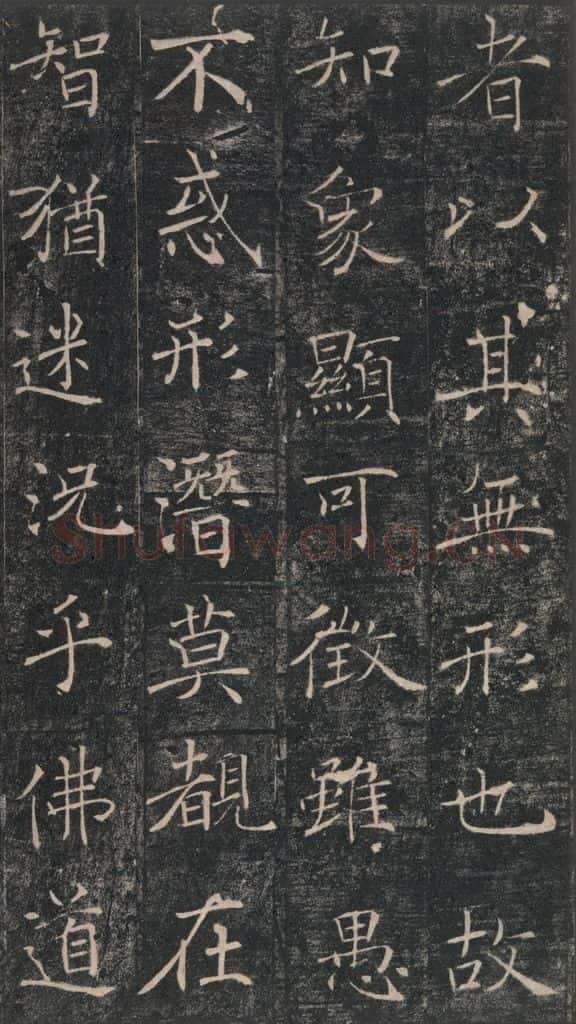 者以其無形也故
知象顯可徵雖愚
不惑形潛莫覩在
智猶迷況乎佛道
Shufawang.CN